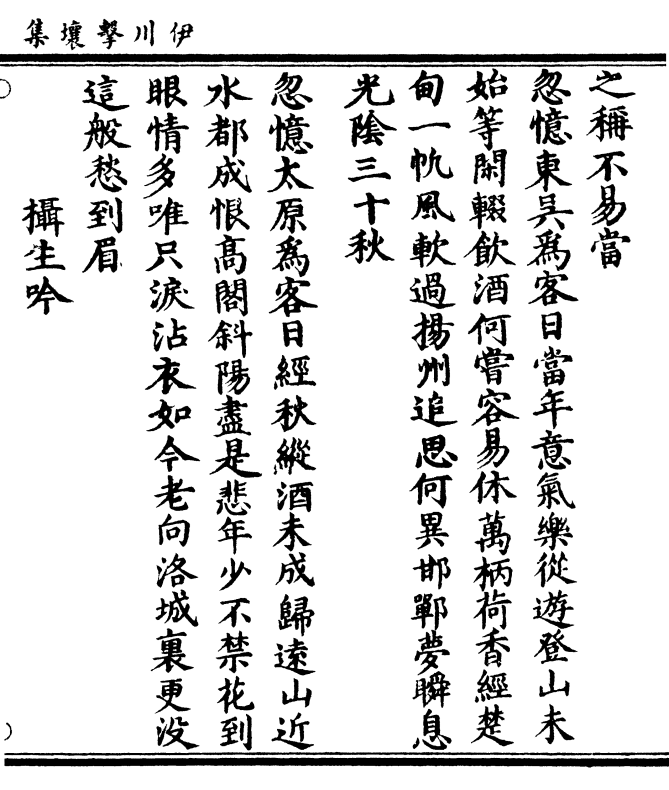 伊川擊壤集
之稱不易當
忽憶東吳爲客日當年意氣樂從遊登山未
始等閑輟飲酒何嘗容易休萬柄荷香經楚
甸一帆風軟過揚州追思何異邯鄲夢瞬息
光陰三十秋
忽憶太原爲客日經秋縱酒未成歸遠山近
水都成恨高閣斜陽盡是悲年少不禁花到
眼情多唯只淚沾衣如今老向洛城裏更没
這般愁到眉
攝生吟